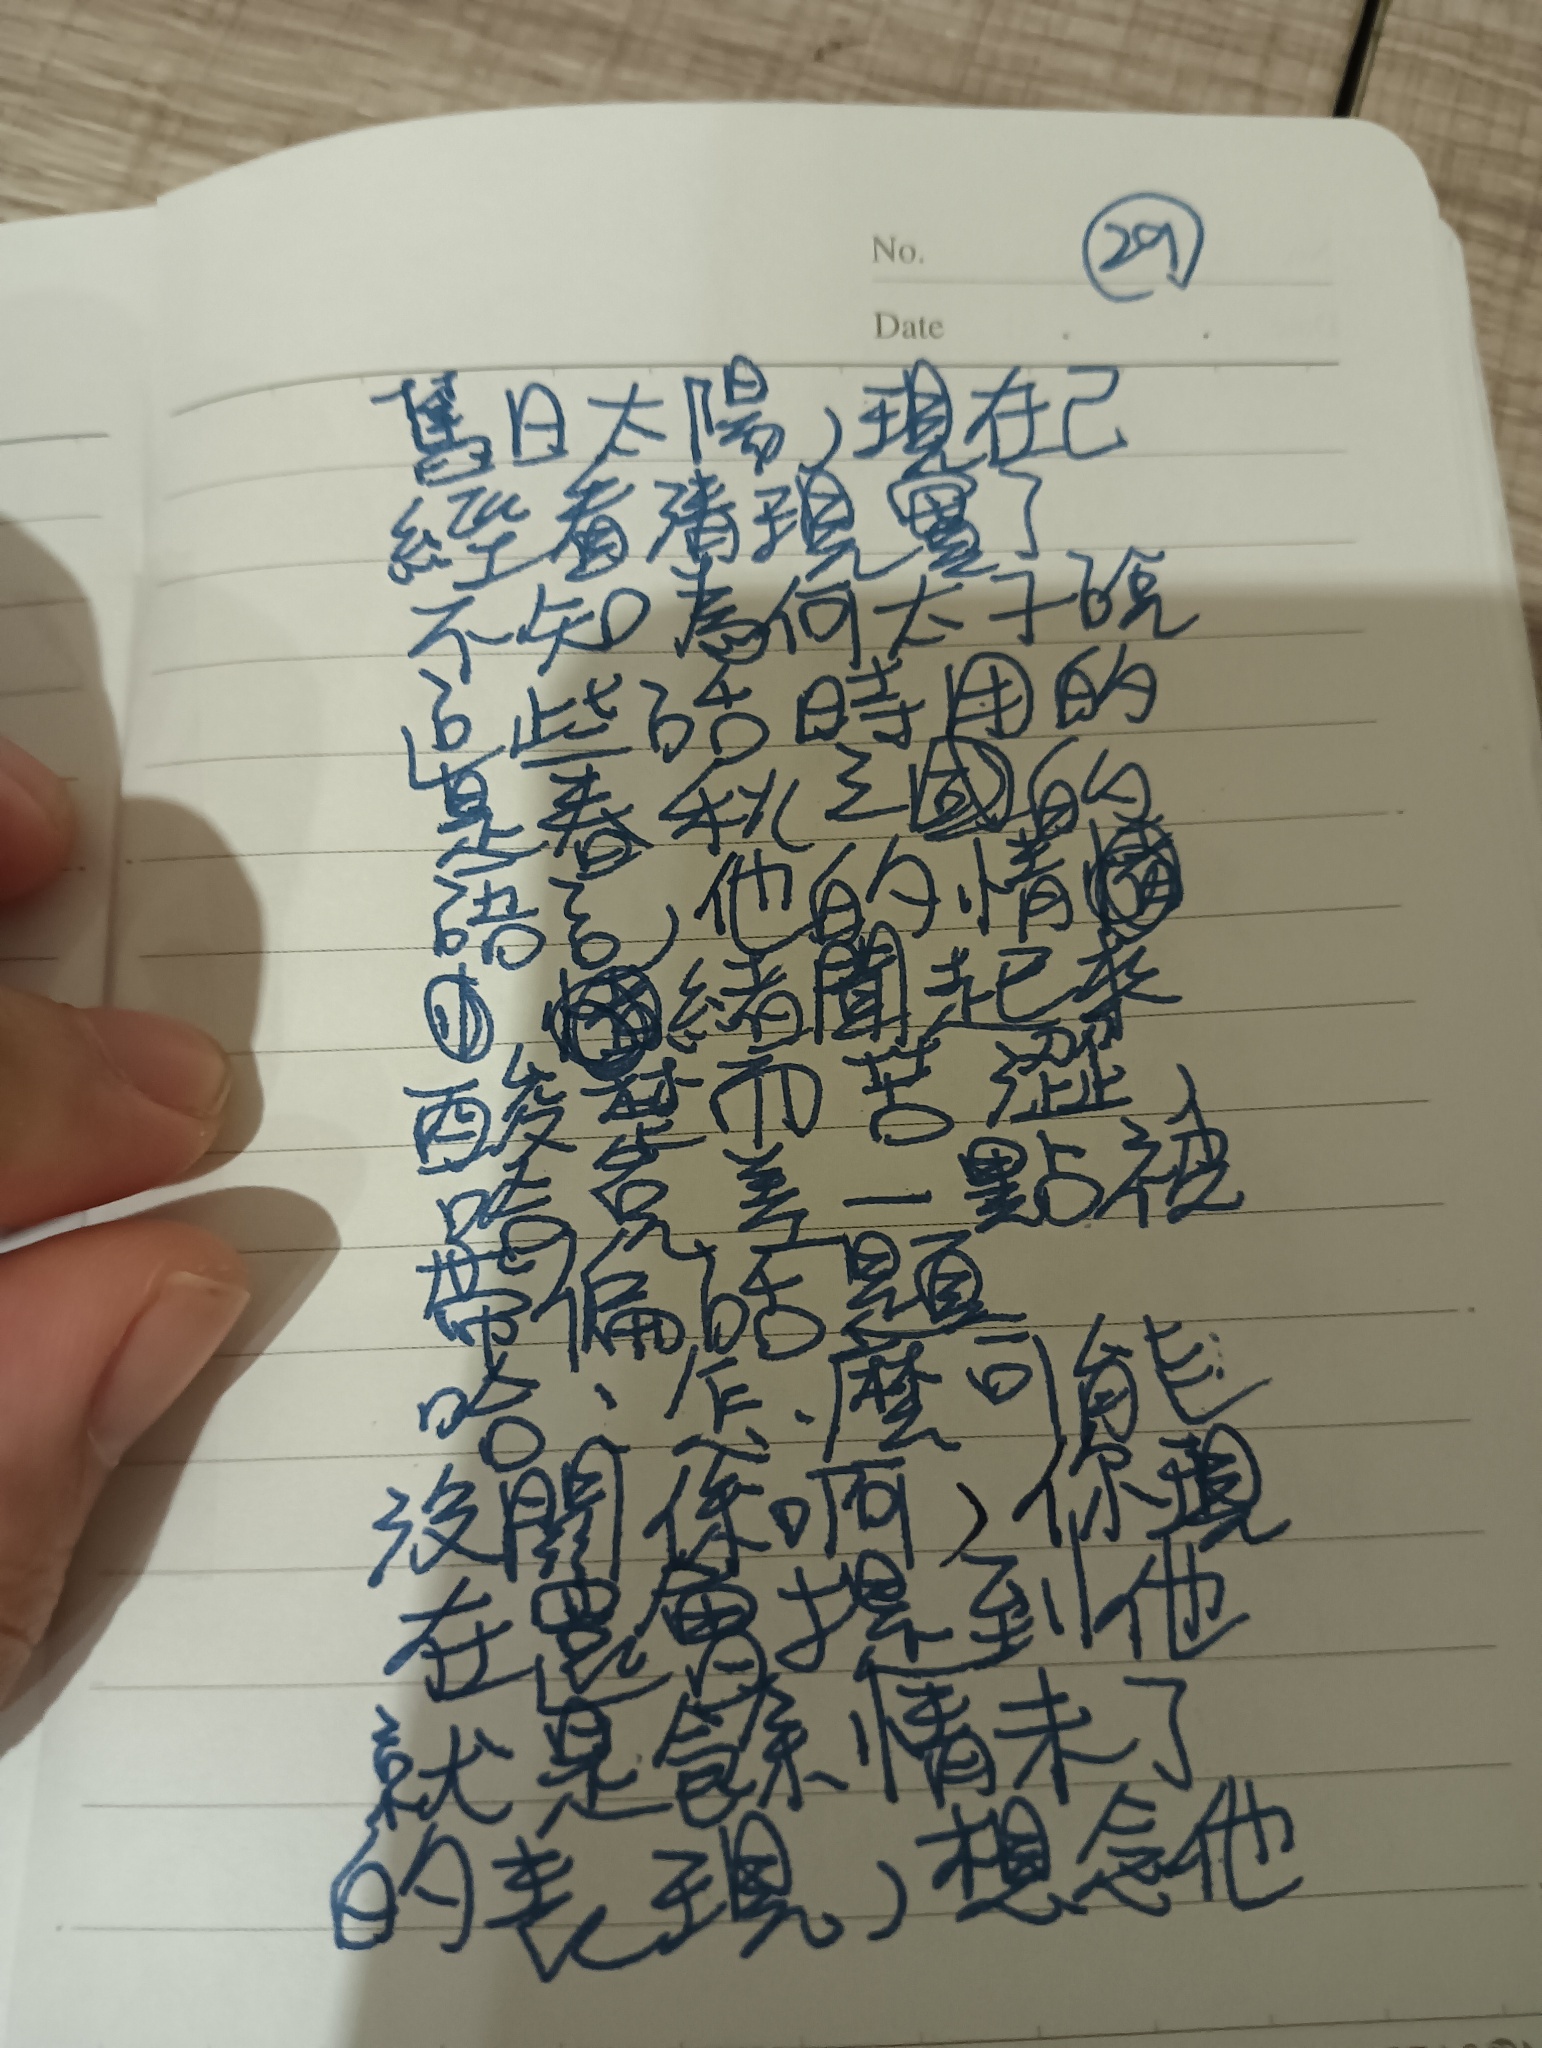 No. 29
Date
舊日太陽,現在已
經看清現實了
不知為何太子說
這些話時用的
是春秋三國的
語言,他的情
緒聞起來
酸楚而苦澀,
路克差一點被
帶偏話題
哈、怎、麼可能
沒關係啊,你現
在還會提到他
就是餘情未了
的表現,想念他